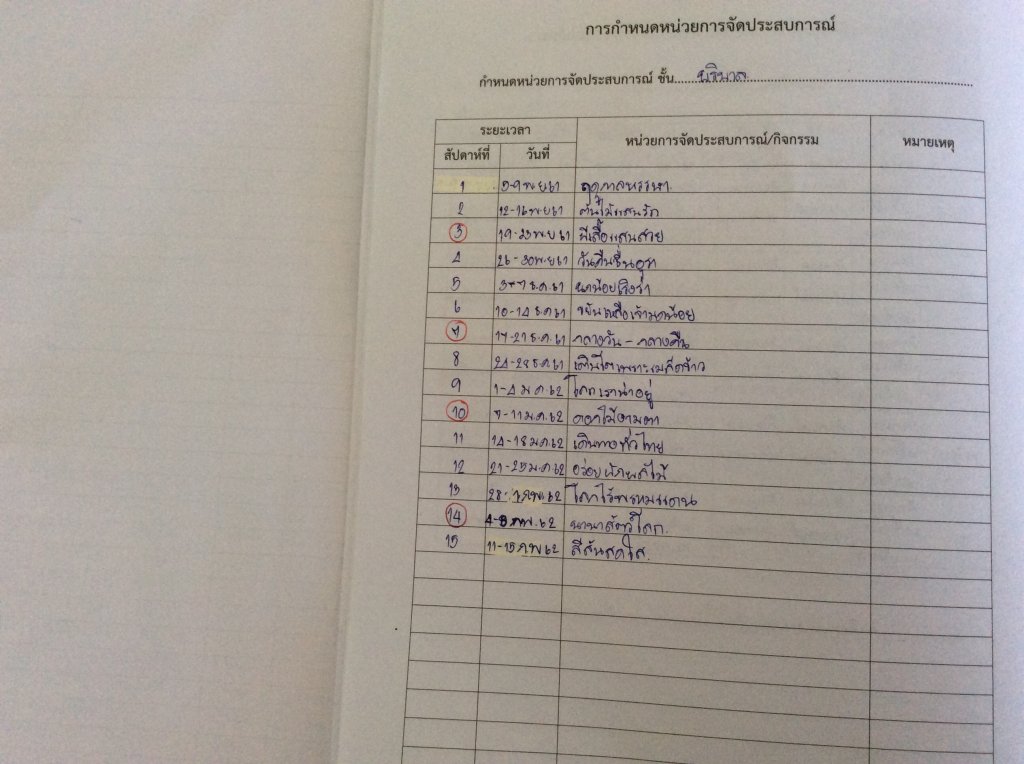 การกำหนดหน่วยการจัดประสบการณ์
กำหนดหน่วยการจัดประสบการณ์ ชั้น..........บริบาล..........
ระยะเวลา หน่วยการจัดประสบการณ์/กิจกรรม หมายเหตุ
สัปดาห์ที่ วันที่
1 5-9 พ.ย 61 ฤดูกาลหรรษา
2 12-16 พ.ย 61 ต้นไม้แสนรัก
3 19-23 พ.ย 61 ผีเสื้อแสนสวย
4 26-30 พ.ย 61 วันคืนชื่นอุรา
5 3-7 ธ.ค.61 นกน้อยเริงร่า
6 10-14 ธ.ค.61 ขยันเหลือเจ้ามดน้อย
7 17-21 ธ.ค.61 กลางวัน - กลางคืน
8 24-28 ธ.ค.61
9 1-4 ม.ค.62 โลกเราน่าอยู่
10 7-11 ม.ค.62 ดอกไม้งามตา
11 14-18 ม.ค.62 เดินทางทั่วไทย
12 21-25 ม.ค.62 อร่อยผักผลไม้
13 28-1 ก.พ.62 โลกไร้พรหมแดน
14 4-8 ก.พ.62 นานาสัตว์โลก
15 11-15 ก.พ 62 สีสันสดใส